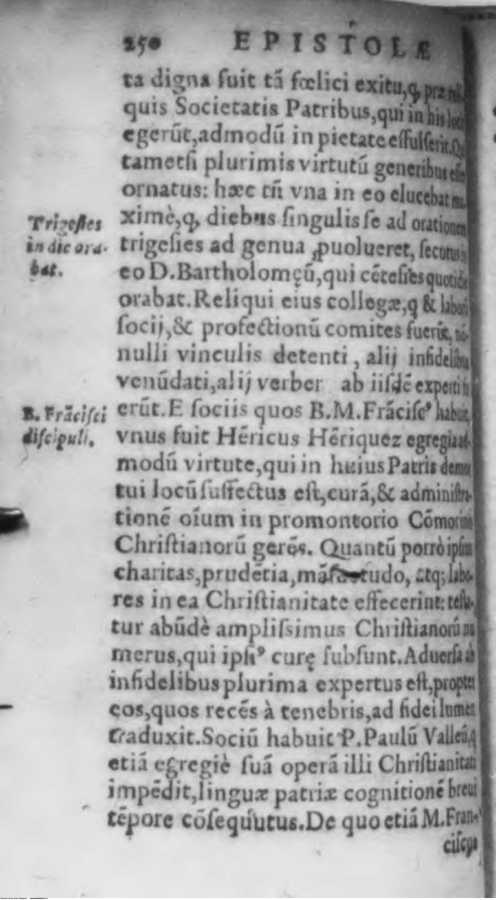 250 EPISTOLÆ
ta digna fuit tā fœlici exitu,q, præ
quis Societatis Patribus,qui in his locis
egerūt,admodū in pietate effulserit.Qui
tametsi plurimis virtutū generibus esset
ornatus: hæc tñ vna in eo elucebat ma
ximè,q, diebus singulis se ad orationem
Trigesies
in die ora-
bat.
trigesies ad genua ꝓuolueret, secutus in
eo D.Bartholomęū,qui cētesies quotidie
orabat.Reliqui eius collegæ,q & laborū
socij,& profectionū comites fuerūt, nō-
nulli vinculis detenti, alij infidelibus
venūdati,alij verber ab iisdē experti
B. Frācisci
discipuli.
erūt.E sociis quos B.M.Frācisc⁹ habuit,
vnus fuit Hēricus Hēriquez egregia ad
modū virtute,qui in huius Patris demor
tui locū suffectus est,curā,& administra-
tionē oīum in promontorio Cōmorino
Christianorū gerēs. Quantū porrò ipsius
charitas,prudētia, atq; labo-
res in ea Christianitate effecerint: testa-
tur abūdè amplissimus Christianorū nu
merus,qui ipsi⁹ curę subsunt.Aduersa ab
infidelibus plurima expertus est,propter
eos,quos recēs à tenebris,ad fidei lumen
traduxit.Sociū habuit P.Paulū Valleū,q
etiā egregiè suā operā illi Christianitati
impēdit,linguæ patriæ cognitionē breui
tēpore cōsequutus.De quo etiā M.Fran-
ciscus